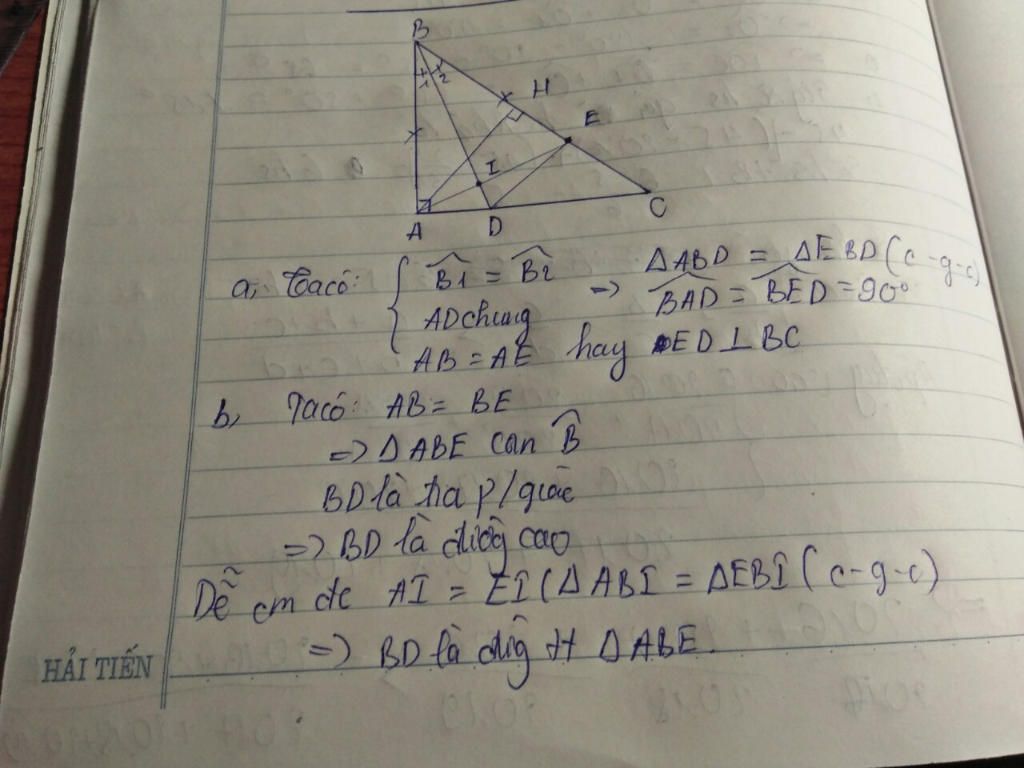 B
1 2
H
E
I
A D C
a, Ta có: { B̂1 = B̂2 => ΔABD = ΔEBD (c-g-c)
AD chung BAD = BED = 90°
AB = AE hay ED ⊥ BC
b, Ta có: AB = BE
=> ΔABE can B̂
BD là tia p/giác
=> BD là đường cao
Dễ cm đc AI = EI (ΔABI = ΔEBI (c-g-c)
=> BD là đg tt ΔABE.
HẢI TIẾN